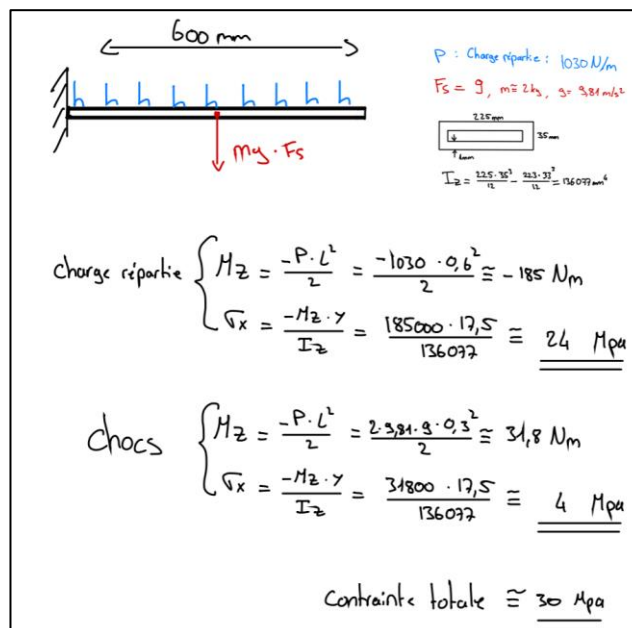 600 mm
P : Charge répartie : 1030 N/m
Fs = 9, m ≅ 2kg, g = 9,81 m/s²
mg · Fs
225mm
35mm
1mm
Iz = 225·35³/12 - 223·33³/12 = 136077 mm⁴
charge répartie { Mz = -P·L²/2 = -1030·0,6²/2 ≅ -185 Nm
σx = -Mz·y/Iz = 185000·17,5/136077 ≅ 24 Mpa
chocs { Mz = -P·L²/2 = 2·9,81·9·0,3²/2 ≅ 31,8 Nm
σx = -Mz·y/Iz = 31800·17,5/136077 ≅ 4 Mpa
Contrainte totale ≅ 30 Mpa